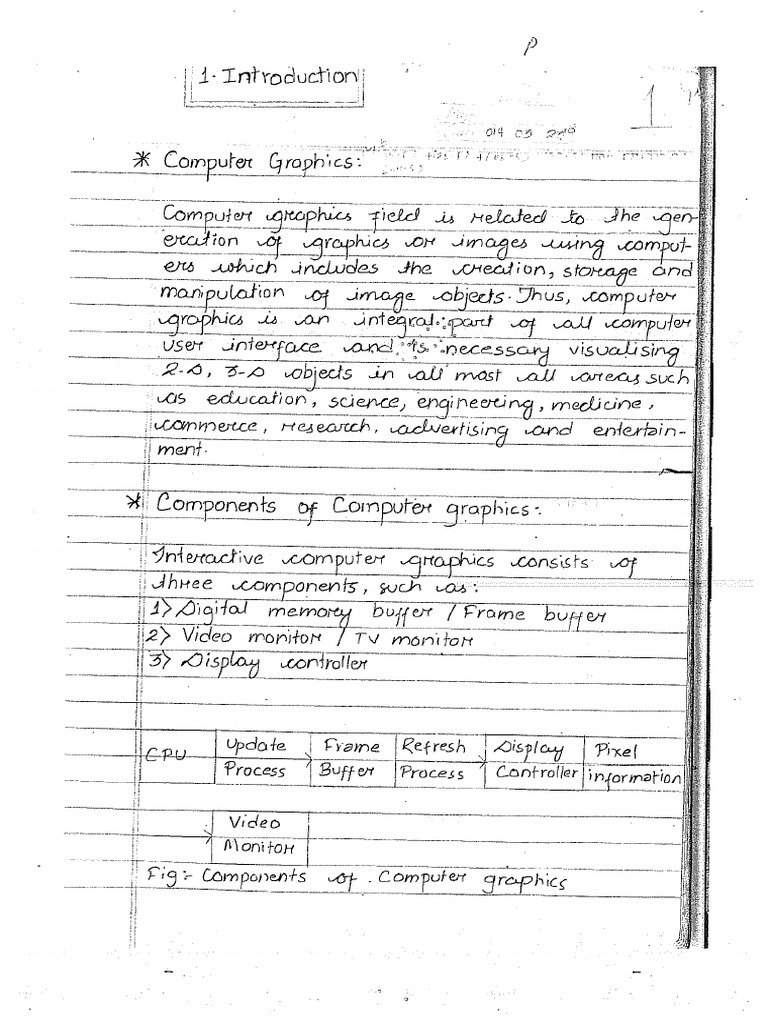 P
1. Introduction
1
* Computer Graphics:
Computer graphics field is related to the gen-
eration of graphics or images using comput-
ers which includes the creation, storage and
manipulation of image objects. Thus, computer
graphics is an integral part of all computer
user interface and is necessary visualising
2-D, 3-D objects in all most all areas such
as education, science, engineering, medicine,
commerce, research, advertising and entertain-
ment.
* Components of Computer graphics:
Interactive computer graphics consists of
three components, such as:
1> Digital memory buffer / Frame buffer
2> Video monitor / TV monitor
3> Display controller
CPU Update Process Frame Buffer Refresh Process Display Controller Pixel information
Video
Monitor
Fig:- Components of Computer graphics